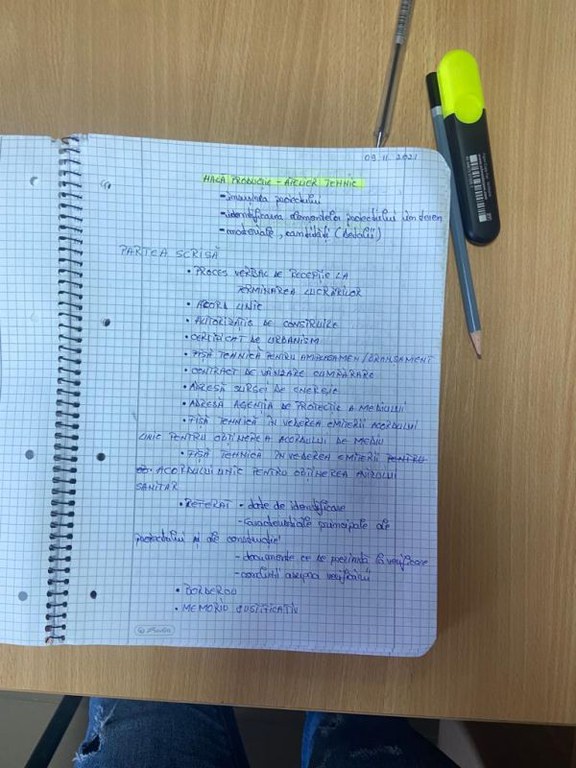 09.11.2021
HALĂ PRODUCȚIE - ATELIER TEHNIC
- proiectului
- identificarea elementelor proiectului din teren
- materiale, cantități (detalii)
PARTEA SCRISĂ
• PROCES VERBAL DE RECEPȚIE LA
TERMINAREA LUCRĂRILOR
• ACORD UNIC
• AUTORIZAȚIE DE CONSTRUIRE
• CERTIFICAT DE URBANISM
• FIȘĂ TEHNICĂ PENTRU AMPLASAMENT/BRANȘAMENT
• CONTRACT DE VÂNZARE CUMPĂRARE
• ADRESĂ DE ENERGIE
• ADRESĂ AGENȚIA DE PROTECȚIE A MEDIULUI
• FIȘĂ TEHNICĂ ÎN VEDEREA EMITERII ACORDULUI
UNIC PENTRU OBȚINEREA ACORDULUI DE MEDIU
• FIȘĂ TEHNICĂ ÎN VEDEREA EMITERII PENTRU
ACORDULUI UNIC PENTRU OBȚINEREA AVIZULUI
SANITAR
• REFERAT - date de identificare
- caracteristicile principale ale
proiectului și ale construcției
- documente ce se prezintă la verificare
- concluzii asupra verificării
• BORDEROU
• MEMORIU JUSTIFICATIV